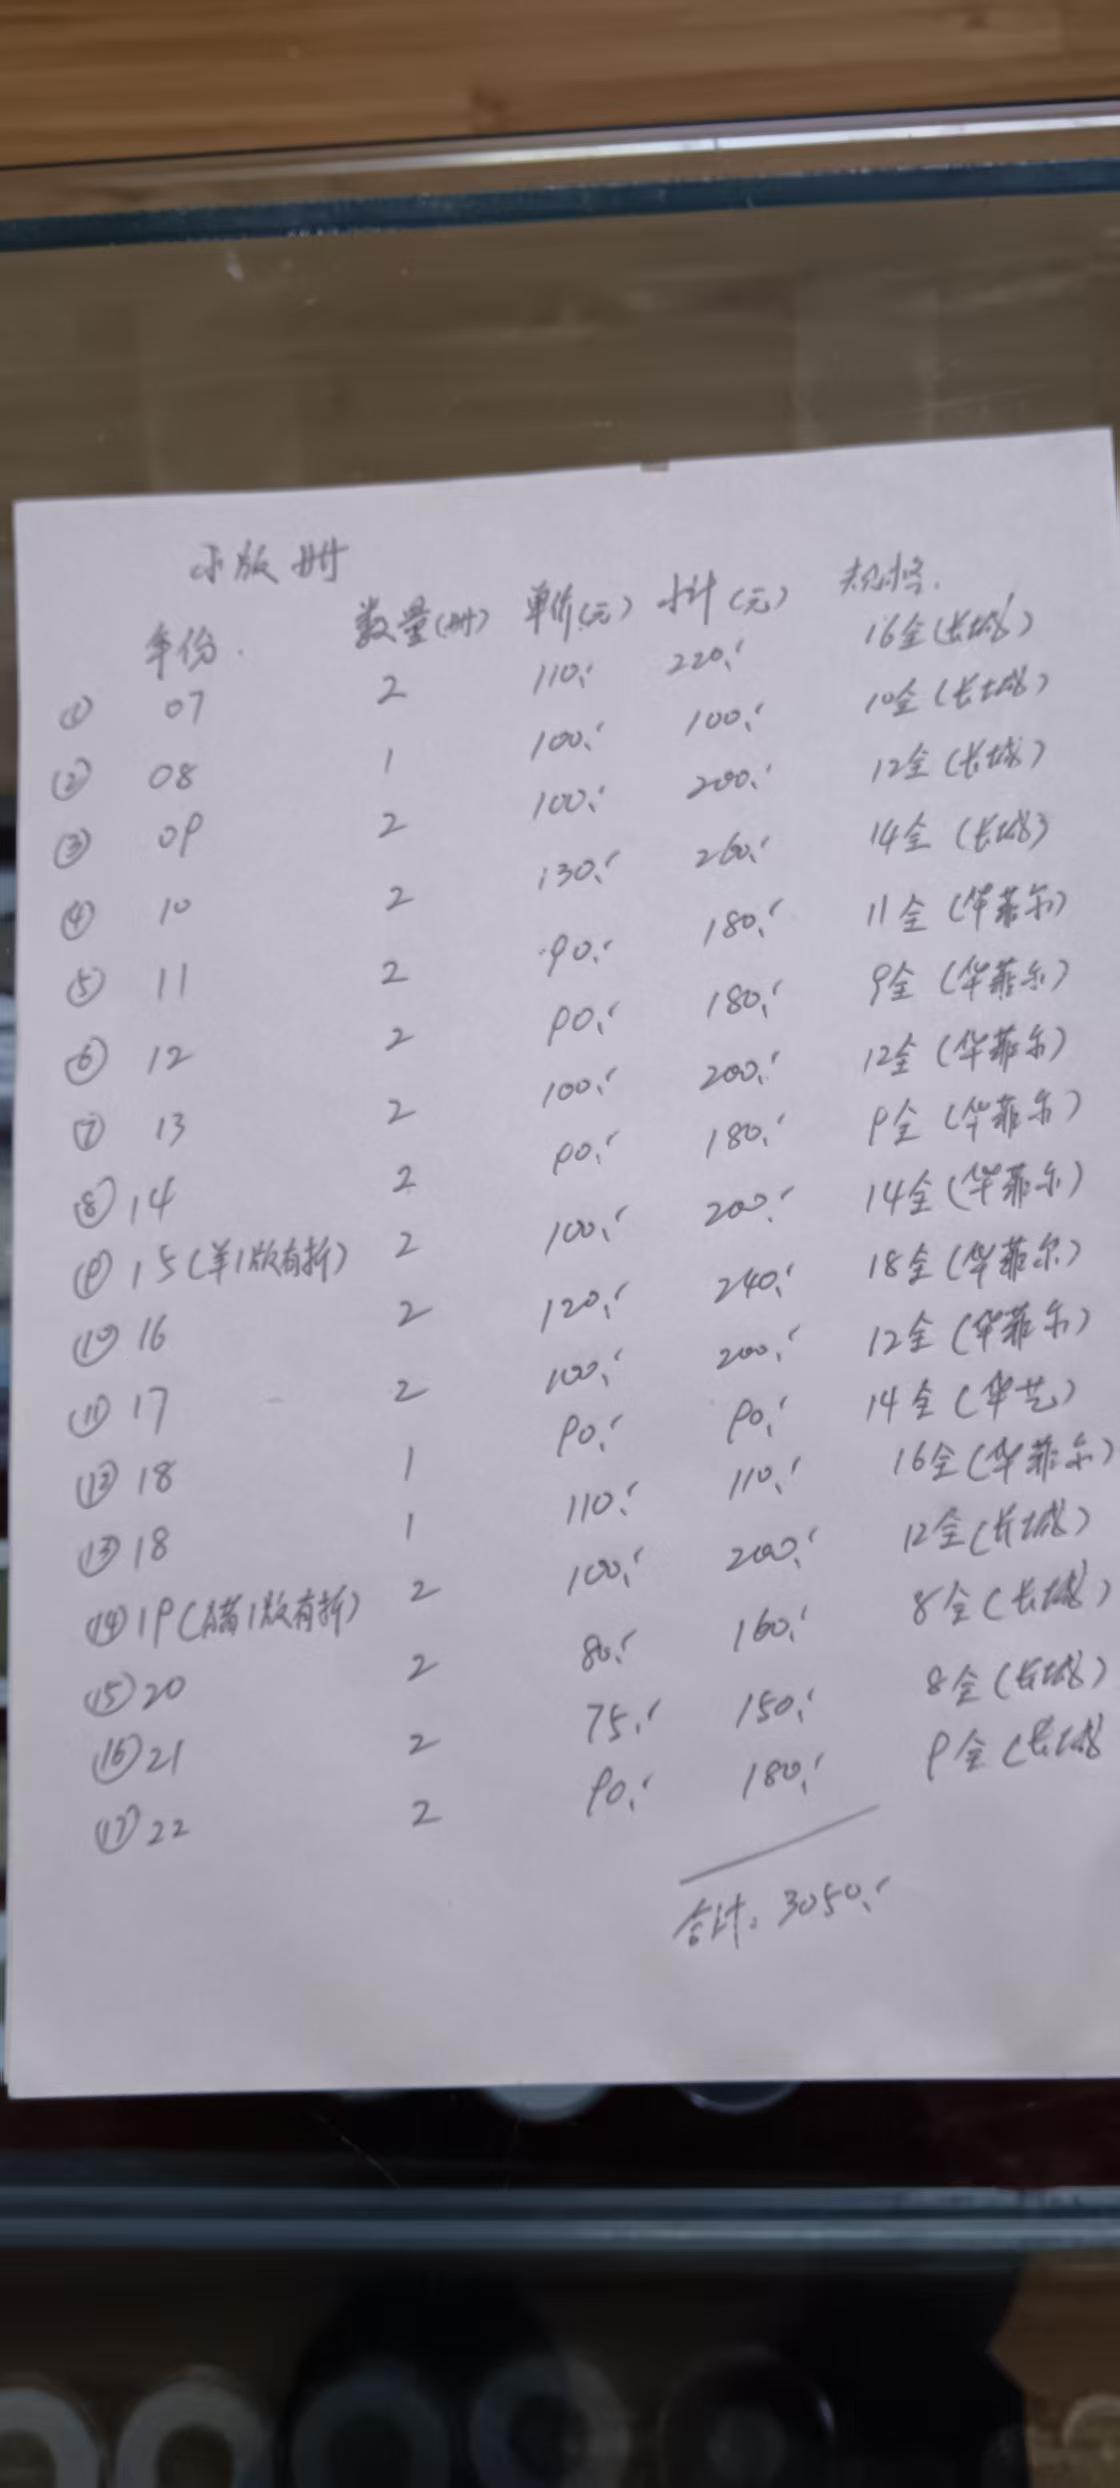 小版册
年份 数量(册) 单价(元) 小计(元) 规格
① 07 2 110 220 16全(长城)
② 08 1 100 100 10全(长城)
③ 09 2 100 200 12全(长城)
④ 10 2 130 260 14全(长城)
⑤ 11 2 90 180 11全(华菲尔)
⑥ 12 2 90 180 9全(华菲尔)
⑦ 13 2 100 200 12全(华菲尔)
⑧ 14 2 90 180 9全(华菲尔)
⑨ 15(羊1版有折) 2 100 200 14全(华菲尔)
⑩ 16 2 120 240 18全(华菲尔)
⑪ 17 2 100 200 12全(华菲尔)
⑫ 18 1 90 90 14全(华艺)
⑬ 18 1 110 110 16全(华菲尔)
⑭ 19(猪1版有折) 2 100 200 12全(长城)
⑮ 20 2 80 160 8全(长城)
⑯ 21 2 75 150 8全(长城)
⑰ 22 2 90 180 9全(长城
合计: 3050